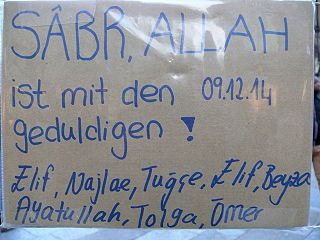 SÂBR, ALLAH
ist mit den 09.12.14
geduldigen !
Elif, Najlae, Tuğçe, Elif, Beyza
Ayatullah, Tolga, Ömer